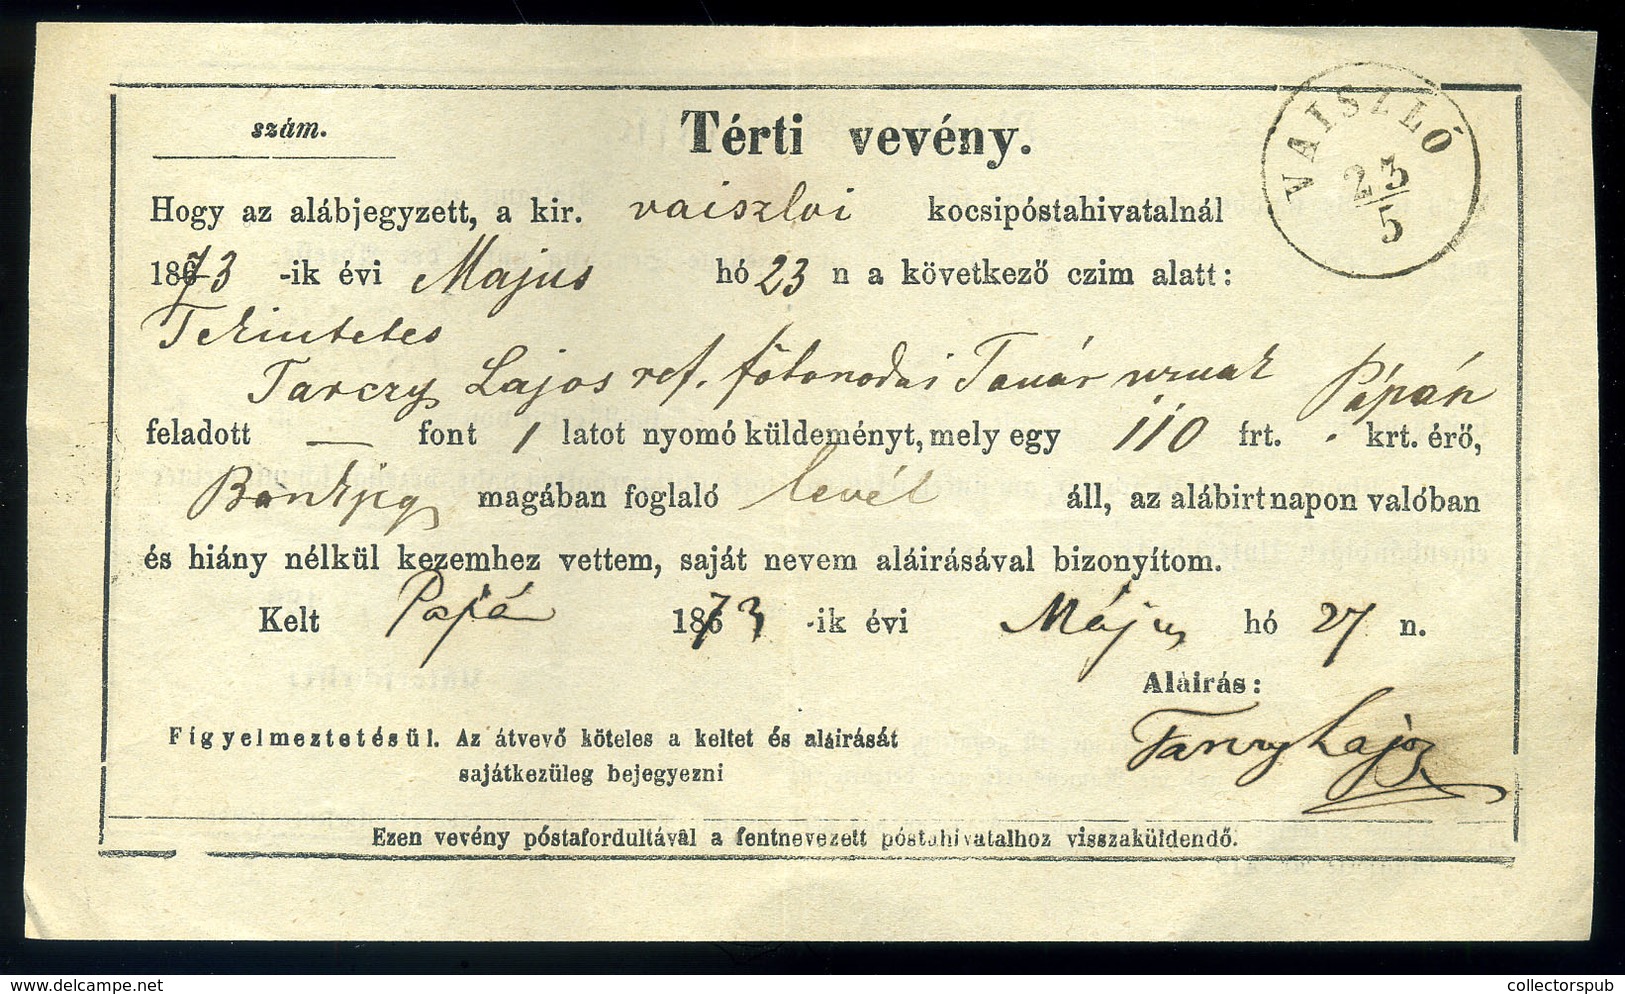 szám.
Térti vevény.
VAISZLÓ
23/5
Hogy az alábjegyzett, a kir. vaiszloi kocsipóstahivatalnál
1873 -ik évi Majus hó 23 n a következő czim alatt:
Tekintetes
Tarczy Lajos ref. főtanodai Tanár urnak Pápán
feladott — font 1 latot nyomó küldeményt, mely egy 110 frt. . krt. érő,
Bankjegy magában foglaló levél áll, az alábirt napon valóban
és hiány nélkül kezemhez vettem, saját nevem aláirásával bizonyítom.
Kelt Pápán 1873 -ik évi Május hó 27 n.
Aláirás:
Tarczy Lajos
Figyelmeztetésül. Az átvevő köteles a keltet és aláirását
sajátkezüleg bejegyezni
Ezen vevény póstafordultával a fentnevezett póstahivatalhoz visszaküldendő.
collectorspub
delcampe.net